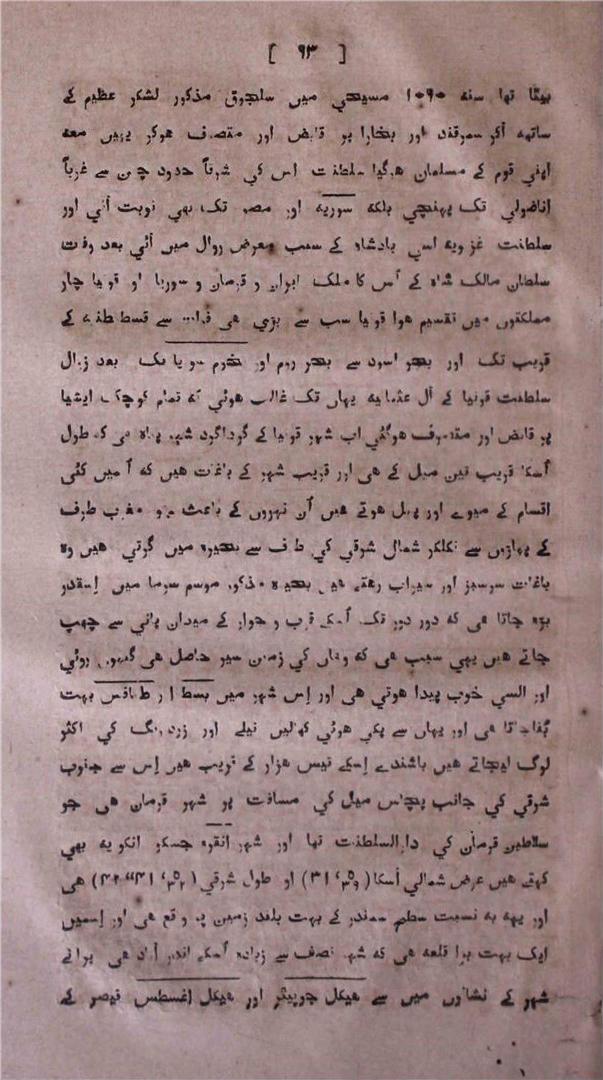 [ ۹۳ ]
بیٹا تھا سنه ۱۰۹۰ مسیحي میں سلجوق مذکور لشکر عظیم کے
ساتهه آکر سمرقند اور بخارا پر قابض اور متصرف هوکر یہیں معه
اپني قوم کے مسلمان هوگیا سلطنت اس کي شرقاً حدود چین سے غرباً
اناضولي تک پہنچي بلکه سوریه اور مصر تک بهي نوبت آئي اور
سلطنت غزنویه اسي بادشاه کے سبب معرض زوال میں آئي بعد وفات
سلطان مالک شاه کے اُس کا ملک ایران و قرمان و سوریا او قونیا چار
مملکتوں میں تقسیم هوا قونیا سب سے بڑي هی فرات سے قسطنطنیه کے
قریب تک اور بحر اسود سے بحر روم اور سوریا تک بعد زوال
سلطنت قونیا کے آل عثمانیه یہاں تک غالب هوئي که تمام کوچک ایشیا
پر قابض اور متصرف هوگئي اب شہر قونیا کے گرداگرد شہر پناه هی که طول
اُسکا قریب تین میل کے هی اور قریب شہر کے باغات هیں که اُ میں کئي
اقسام کے میوے اور پهل هوتے هیں اُن نہروں کے باعث جو مغرب طرف
کے پہاڑوں سے نکلکر شمال شرقي کي طرف سے بحیره میں گرتي هیں وه
باغات سرسبز اور سیراب رهتے هیں بحیره مذکور موسم سرما میں اِسقدر
بڑه جاتا هی که دور دور تک اُسکے قرب و جوار کے میدان پاني سے چهپ
جاتے هیں یہي سبب هی که وهاں کي زمین سیر حاصل هی گیہوں روئي
اور السي خوب پیدا هوتي هی اور اِس شہر میں بسط ا ر طنافس بہت
بُنا جاتا هی اور یہاں سے پکي هوئي کهالیں نیلے اور زرد رنگ کي اکثر
لوگ لیجاتے هیں باشندے اِسکے تیس هزار کے قریب هیں اِس سے جنوب
شرقي کي جانب پچاس میل کي مسافت پر شہر قرمان هی جو
سلاطین قرمان کي دارالسلطنت تها اور شہر انقره جسکو انکوریه بهي
کہتے هیں عرض شمالي اُسکا ( ) او طول شرقي ( ) هی
اور یہه به نسبت سطح سمندر کے بہت بلند زمین پر واقع هی اور اِسمیں
ایک بہت بڑا قلعه هی که شہر نصف سے زیاده اُسکے اندر آباد هی پرانے
شہر کے نشانوں میں سے هیکل جوپیٹر اور هیکل اغسطس قیصر کے